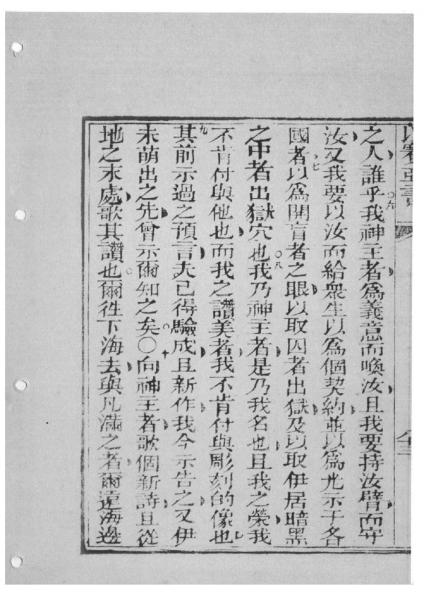 之人誰乎我神主者爲義意而喚汝且我要持汝臂而守
汝又我要以汝而給衆生以爲個契約並以爲光示于各
七
國者以爲開盲者之眼以取囚者出獄及以取伊居暗黑
之中者出獄穴也我乃神主者是乃我名也且我之榮我
八
不肯付與他也而我之讚美者我不肯付與彫刻的像也
九
其前示過之預言夫已得驗成且新作我今示告之又伊
未萌出之先曾示爾知之矣〇向神主者歌個新詩且從
十
地之末處歌其讚也爾徃下海去與凡滿之者爾遠海邊